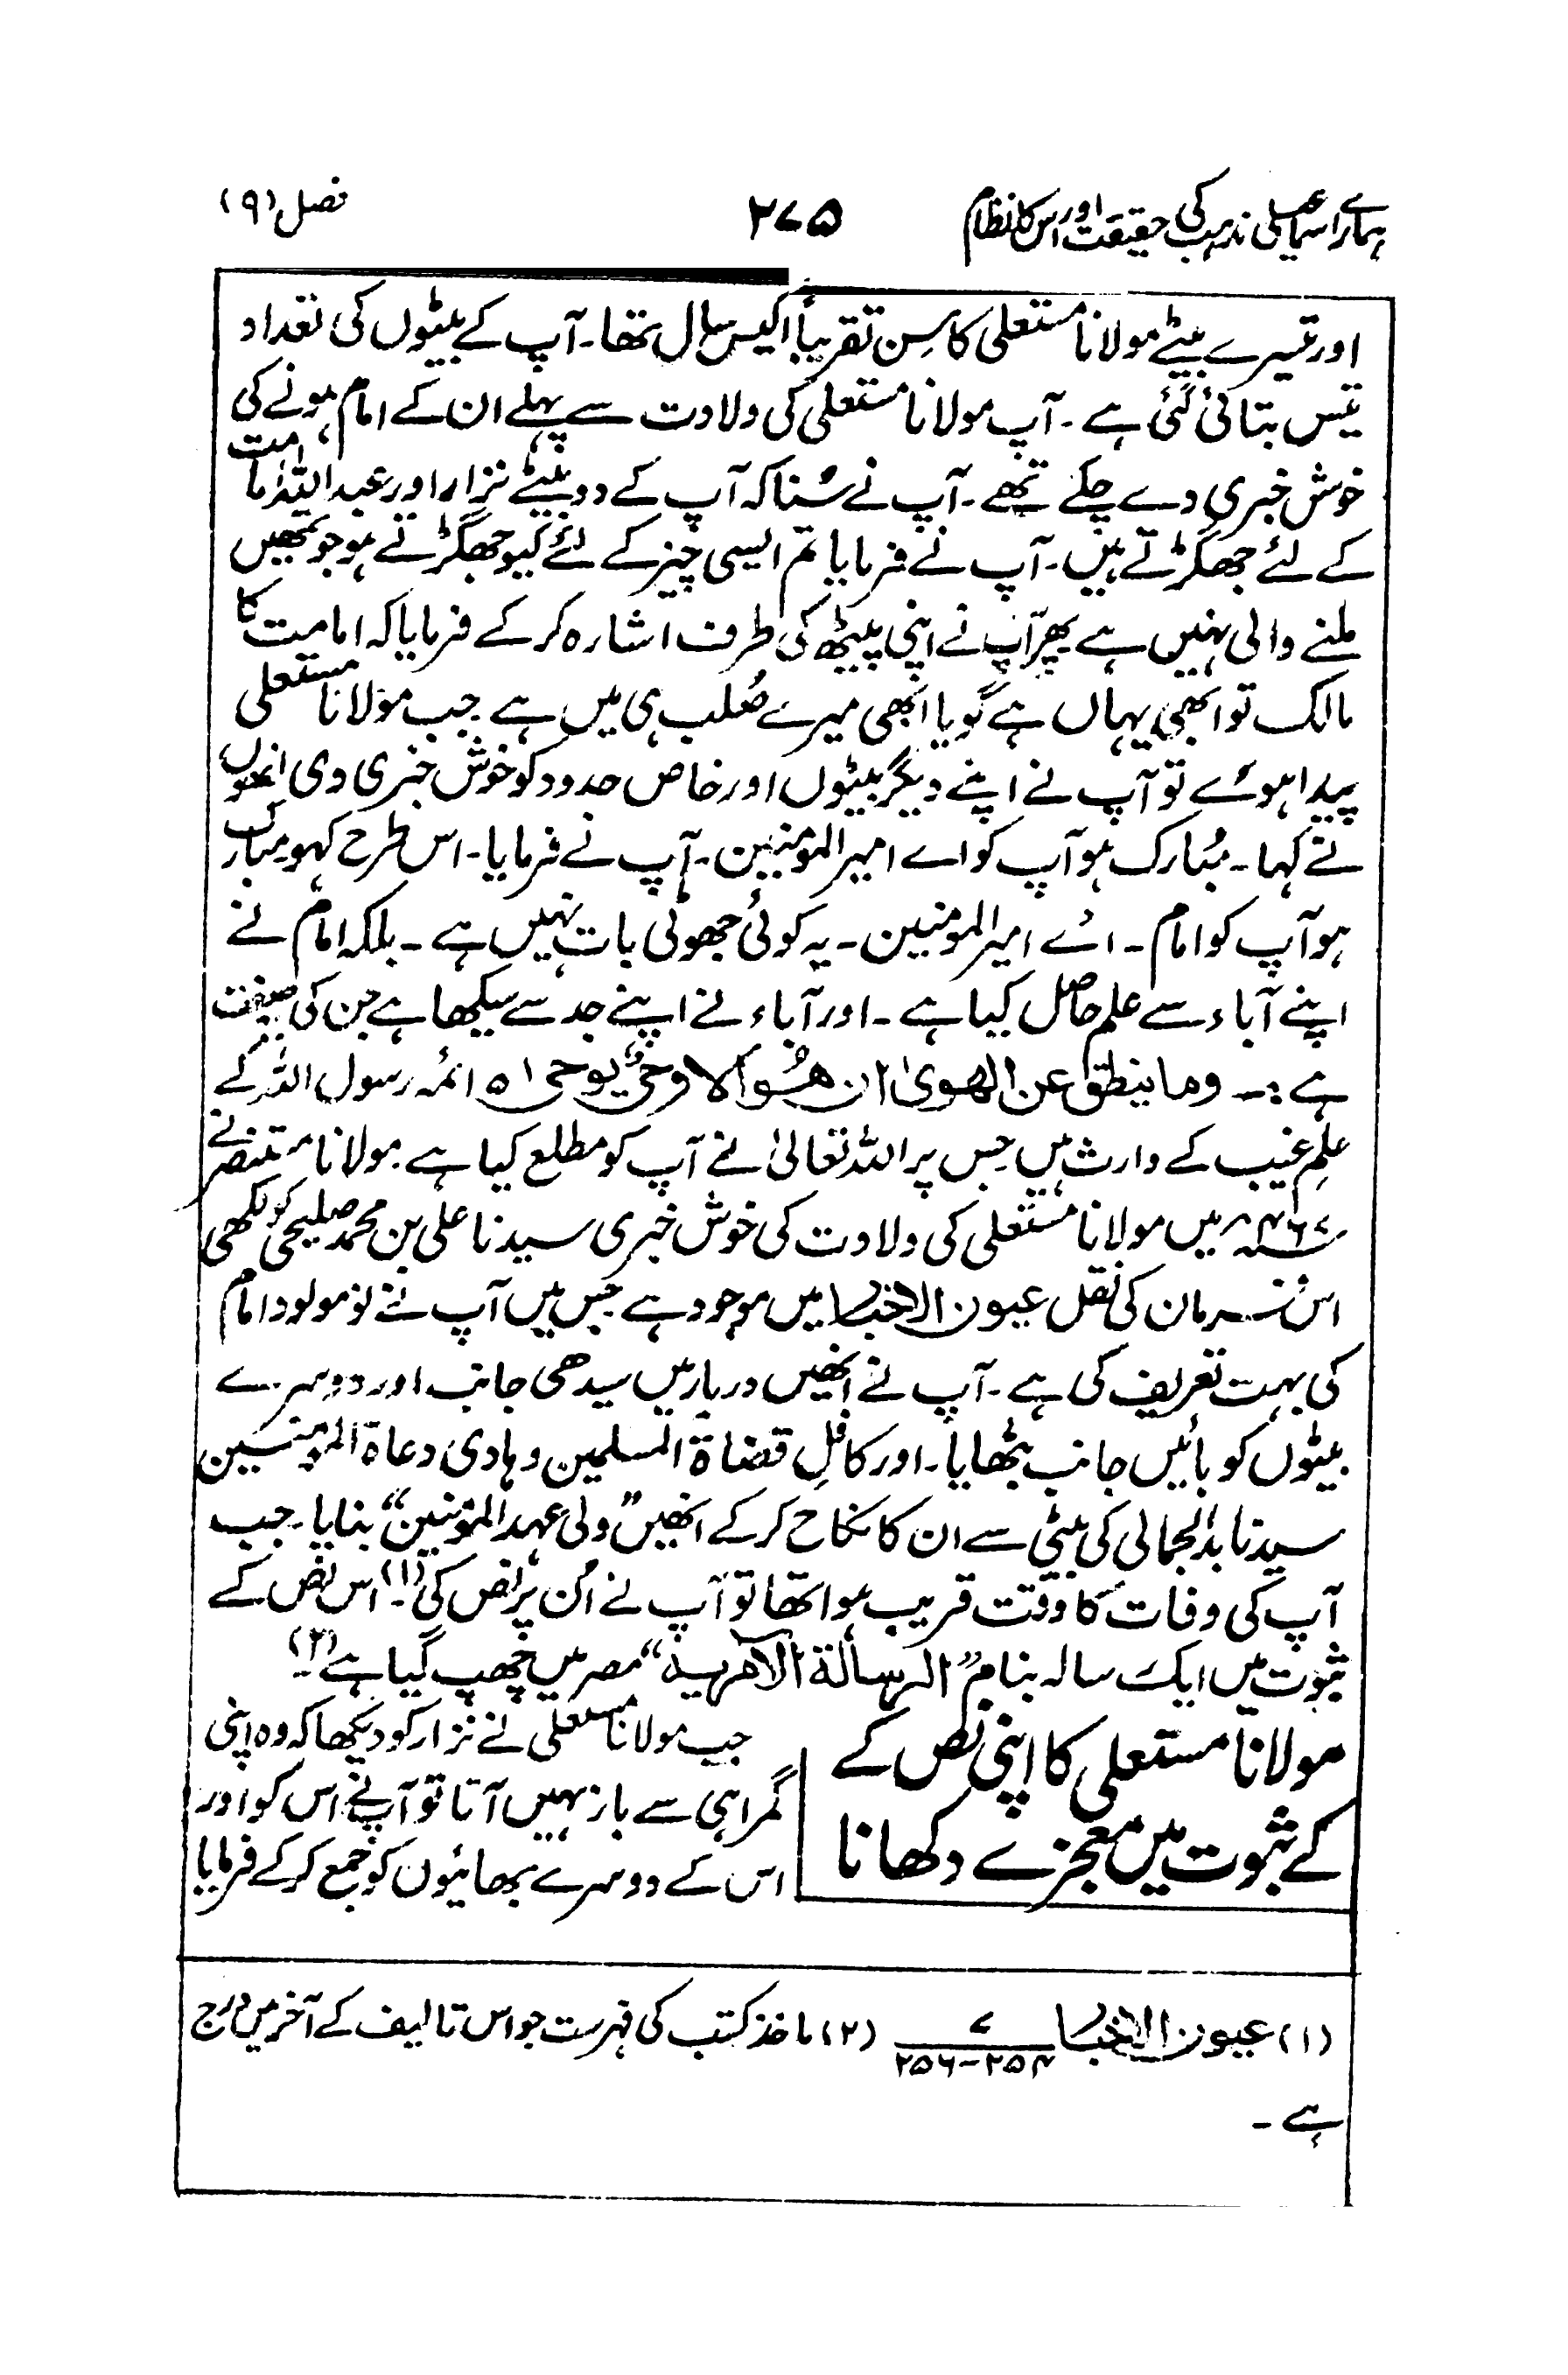 ہمارے اسماعیلی مذہب کی حقیقت اور اس کا نظام ۲۷۵ فصل (۹)
اور تیسرے بیٹے مولانا مستعلی کا سِن تقریباً اکیس سال تھا۔ آپ کے بیٹوں کی تعداد
تیئس بتائی گئی ہے۔ آپ مولانا مستعلی کی ولادت سے پہلے ان کے امام ہونے کی
خوش خبری دے چکے تھے۔ آپ نے سُنا کہ آپ کے دو بیٹے نزار اور عبداللہ امامت
کے لئے جھگڑتے ہیں۔ آپ نے فرمایا تم ایسی چیز کے لئے کیو جھگڑتے ہو جو تمھیں
ملنے والی نہیں ہے پھر آپ نے اپنی پیٹھ کی طرف اشارہ کر کے فرمایا کہ امامیت کا
مالک تو ابھی یہاں ہے گویا ابھی میرے صُلب ہی میں ہے جب مولانا مستعلی
پیدا ہوئے تو آپ نے اپنے دیگر بیٹوں اور خاص حدود کو خوش خبری دی انھوں
نے کہا۔ مُبارک ہو آپ کو اے امیرالمومنین۔ آپ نے فرمایا۔ اس طرح کہو مبارک
ہو آپ کو امام۔ اے امیرالمومنین۔ یہ کوئی جھوٹی بات نہیں ہے۔ بلکہ امام نے
اپنے آباء سے علم حاصل کیا ہے۔ اور آباء نے اپنے جد سے سیکھا ہے جن کی صفت
ہے :۔ وما ینطق عن الھویٰ ان ھُوَ الا وحیٌ یوحیٰ ٥ ائمہ رسول اللہ کے
علمِ غیب کے وارث ہیں جس پر اللہ تعالیٰ نے آپ کو مطلع کیا ہے۔ مولانا مستنصر نے
۴۶۷ھ میں مولانا مستعلی کی ولادت کی خوش خبری سیدنا علی بن محمد صلیحی کو لکھی
اس فرمان کی نقل عیون الاخبار میں موجود ہے جس میں آپ نے نو مولود امام
کی بہت تعریف کی ہے۔ آپ نے انھیں دربار میں سیدھی جانب اور دوسرے
بیٹوں کو بائیں جانب بٹھایا۔ اور کافلِ قضاۃ المسلمین وہادی دعاۃ المؤمنین
سیدنا بدرالجمالی کی بیٹی سے ان کا نکاح کر کے انھیں ”ولی عہد المؤمنین“ بنایا۔ جب
آپ کی وفات کا وقت قریب ہوا تھا تو آپ نے اُن پر نص کی (۱)۔ اس نص کے
ثبوت میں ایک سالہ بنام ”الرسالة الآمریة“ مصر میں چھپ گیا ہے (۲)۔
مولانا مستعلی کا اپنی نص کے
کے ثبوت میں معجزے دکھانا
جب مولانا مستعلی نے نزار کو دیکھا کہ وہ اپنی
گمراہی سے باز نہیں آتا تو آپنے اس کو اور
اس کے دوسرے بھائیوں کو جمع کر کے فرمایا
(۱) عیون الاخبار ۷ / ۲۵۴-۲۵۶ (۲) ماخذ کتب کی فہرست جو اس تالیف کے آخر میں درج
ہے۔